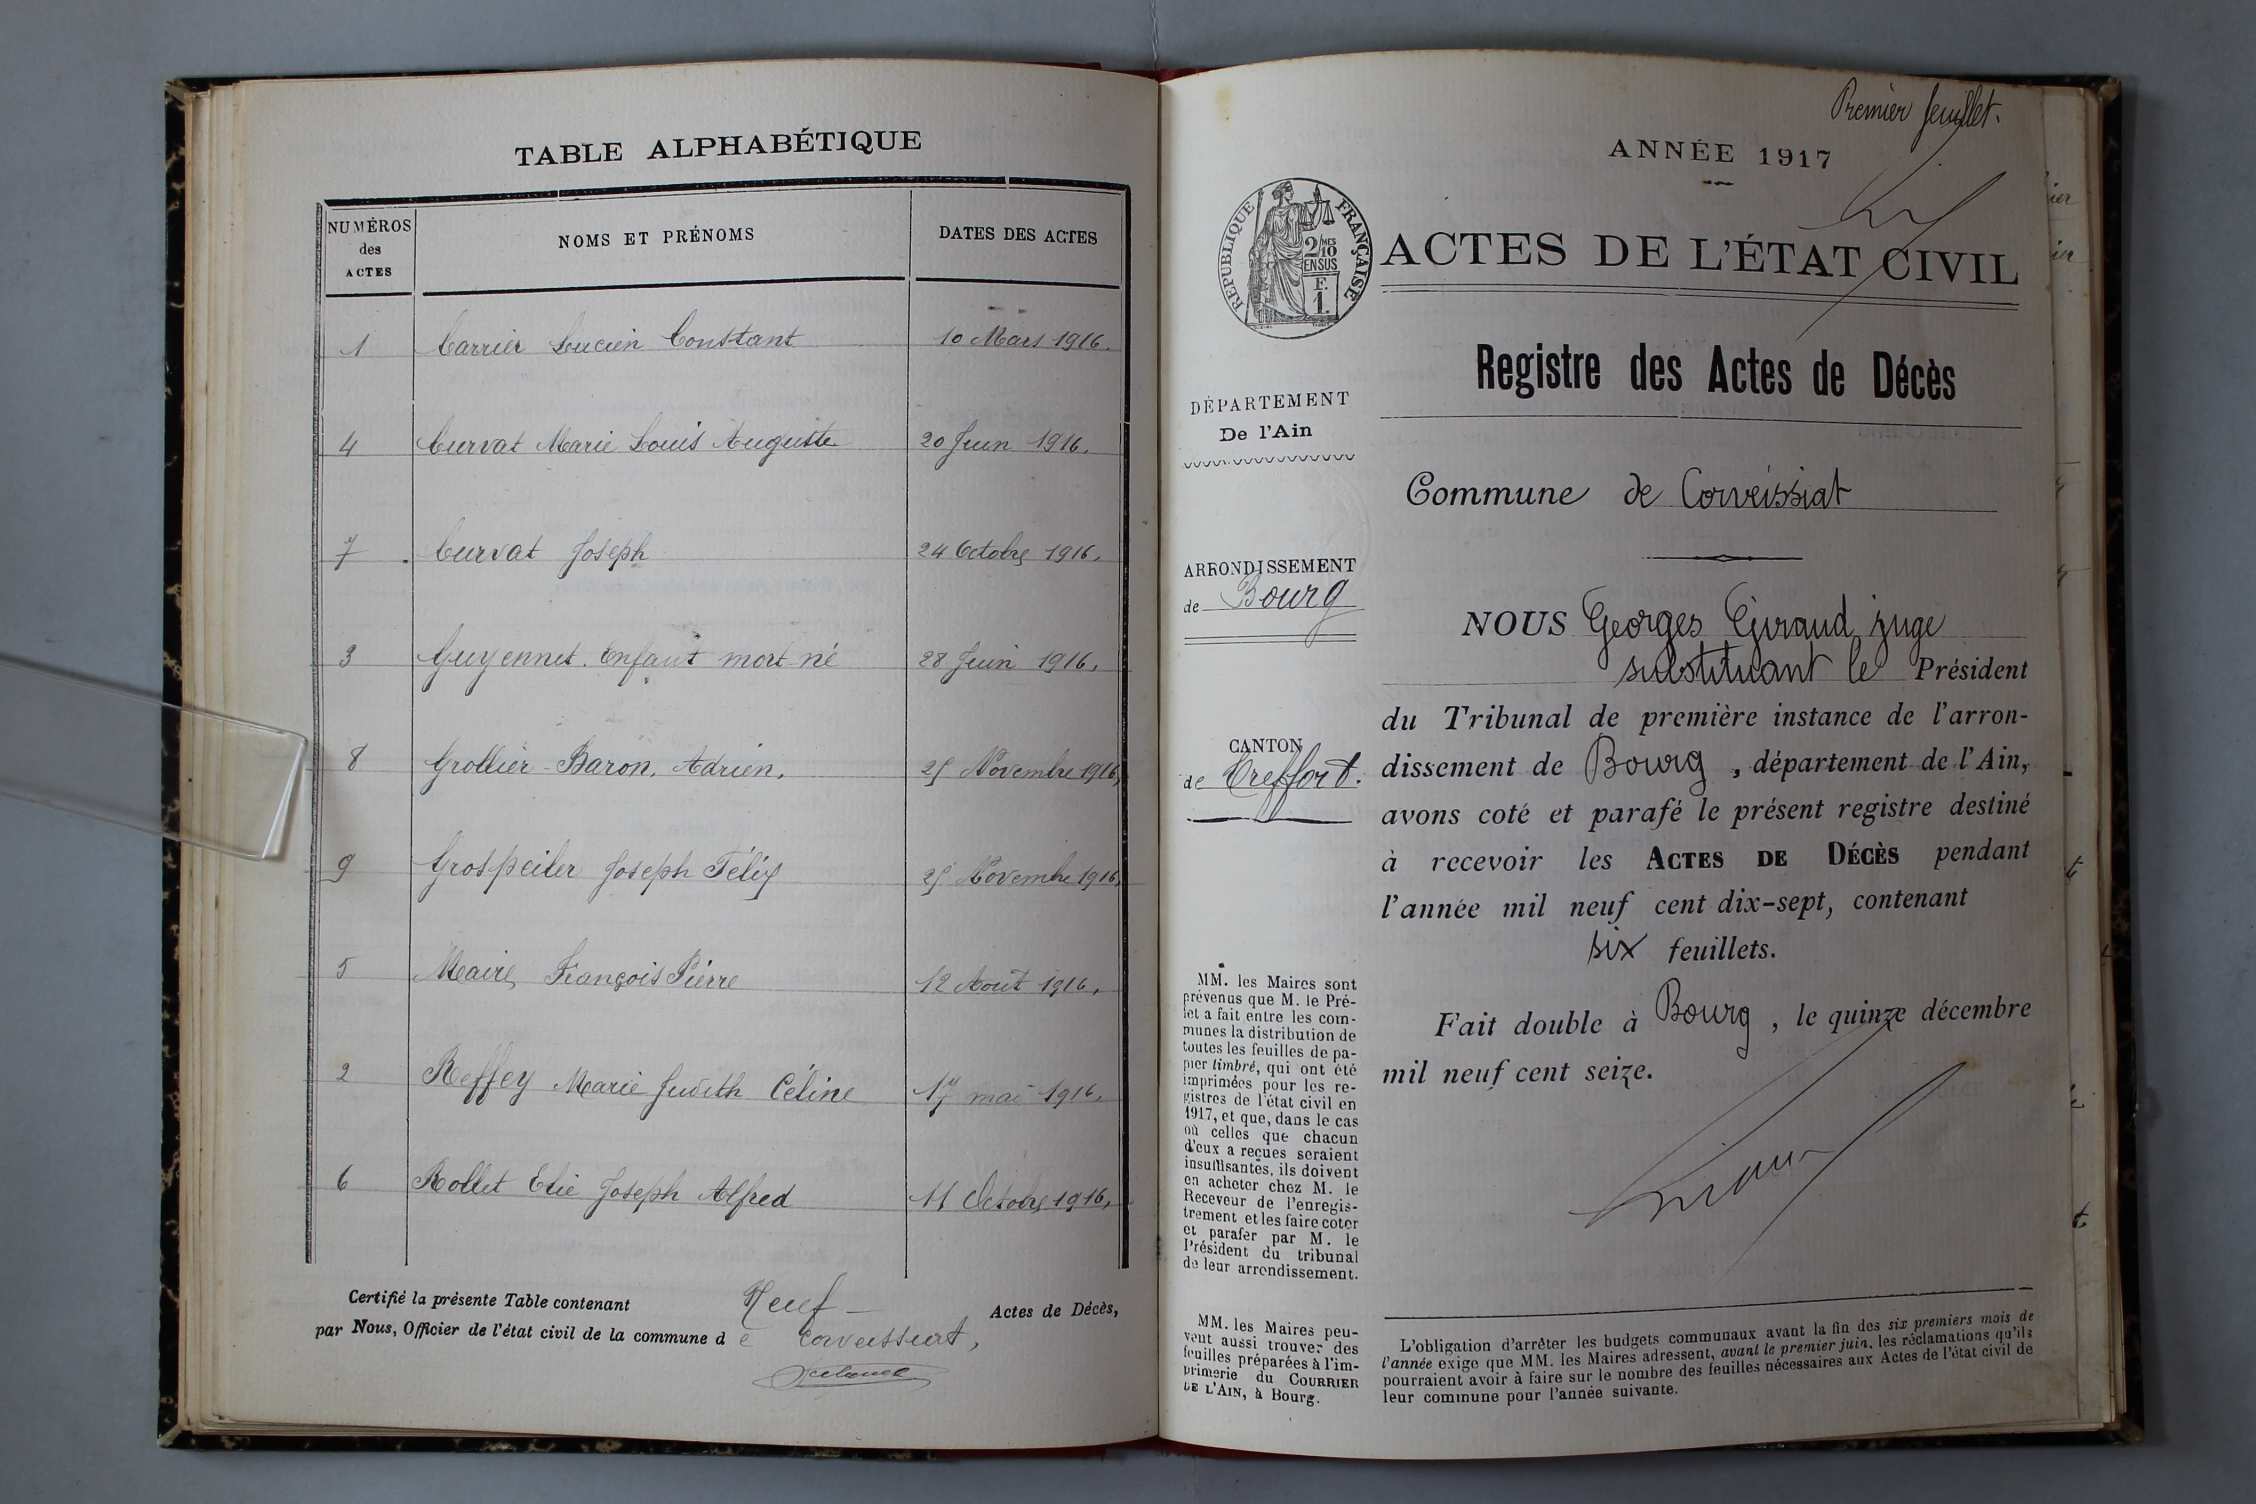 TABLE ALPHABÉTIQUE
NUMÉROS des ACTES
NOMS ET PRÉNOMS
DATES DES ACTES
1 Carrier Lucien Constant 10 Mars 1916.
4 Curvat Marie Louis Auguste 20 Juin 1916.
7 Curvat Joseph 24 Octobre 1916.
3 Guyennet. Enfant mort-né 28 Juin 1916.
8 Grollier-Baron, Adrien, 25 Novembre 1916,
9 Grospeiler Joseph Félix 25 Novembre 1916,
5 Maire, François Pierre 12 Août 1916.
2 Reffey Marie Judith Céline 17 mai 1916.
6 Rollet Elie Joseph Alfred 11 Octobre 1916.
Certifié la présente Table contenant Neuf - Actes de Décès,
par Nous, Officier de l'état civil de la commune de Corveissiat,
Premier feuillet.
ANNÉE 1917
RÉPUBLIQUE FRANÇAISE
2/10 MES
EN SUS
F.
1.
ACTES DE L'ÉTAT CIVIL
Registre des Actes de Décès
DÉPARTEMENT
De l'Ain
ARRONDISSEMENT
de Bourg
CANTON
de Treffort.
MM. les Maires sont
prévenus que M. le Pré-
fet a fait entre les com-
munes la distribution de
toutes les feuilles de pa-
pier timbré, qui ont été
imprimées pour les re-
gistres de l'état civil en
1917, et que, dans le cas
où celles que chacun
d'eux a reçues seraient
insuffisantes, ils doivent
en acheter chez M. le
Receveur de l'enregis-
trement et les faire coter
et parafer par M. le
Président du tribunal
de leur arrondissement.
MM. les Maires peu-
vent aussi trouver des
feuilles préparées à l'im-
primerie du COURRIER
DE L'AIN, à Bourg.
Commune de Corveissiat
NOUS Georges Giraud juge
substituant le Président
du Tribunal de première instance de l'arron-
dissement de Bourg, département de l'Ain,
avons coté et parafé le présent registre destiné
à recevoir les ACTES DE DÉCÈS pendant
l'année mil neuf cent dix-sept, contenant
six feuillets.
Fait double à Bourg, le quinze décembre
mil neuf cent seize.
L'obligation d'arrêter les budgets communaux avant la fin des six premiers mois de
l'année exige que MM. les Maires adressent, avant le premier juin, les réclamations qu'ils
pourraient avoir à faire sur le nombre des feuilles nécessaires aux Actes de l'état civil de
leur commune pour l'année suivante.